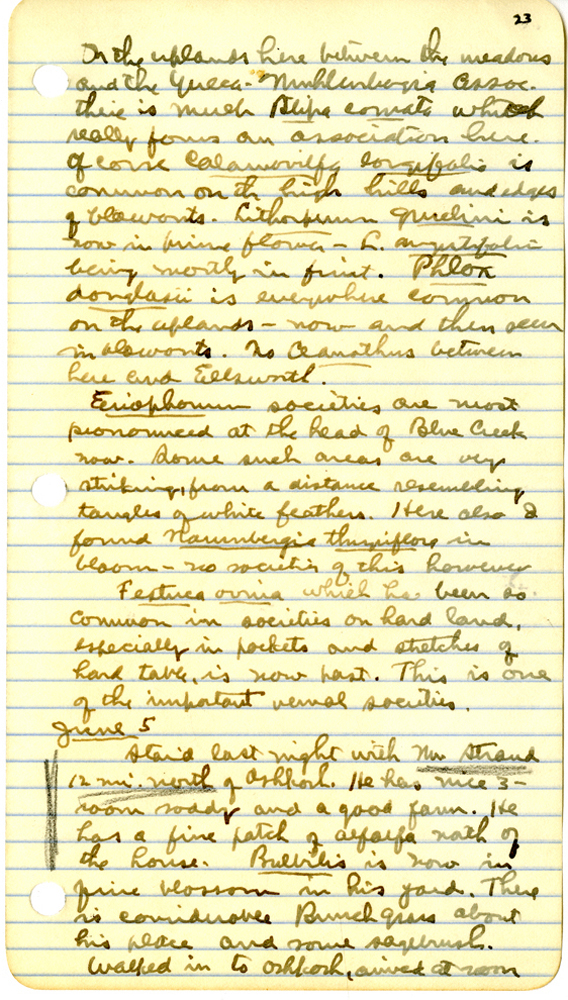 23
On the uplands here between the meadows
and the Yucca-Muhlenbergia assoc.
there is much Stipa comata which
really forms an association here.
Of corse Calamovilfa longifolia is
common on the high hills and edges
of blowouts. Lithospermum gmelini is
now in prime flower - L. angustifolia
being mostly in fruit. Phlox
douglasii is everywhere common
on the uplands - now and then seen
in blowouts. No Ceanothus between
here and Ellsworth.
Eriophorum societies are most
pronounced at the head of Blue Creek
now. Some such areas are very
striking, from a distance resembling
tangles of white feathers. Here also I
found Naumbergia thyrsiflora in
bloom - no societies of this however
Festuca ovina which has been so
common in societies on hard land,
especially in pockets and stretches of
hard table, is now past. This is one
of the important vernal societies.
June 5
Staid last night with Mr Strand
12 mi. north of Oshkosh. He has nice 3-
room soddy and a good farm. He
has a fine patch of alfalfa north of
the house. Bulbilis is now in
fine blossom in his yard. There
is considerable Bunch grass about
his place and some sagebrush.
Walked in to Oshkosh, arrived at noon